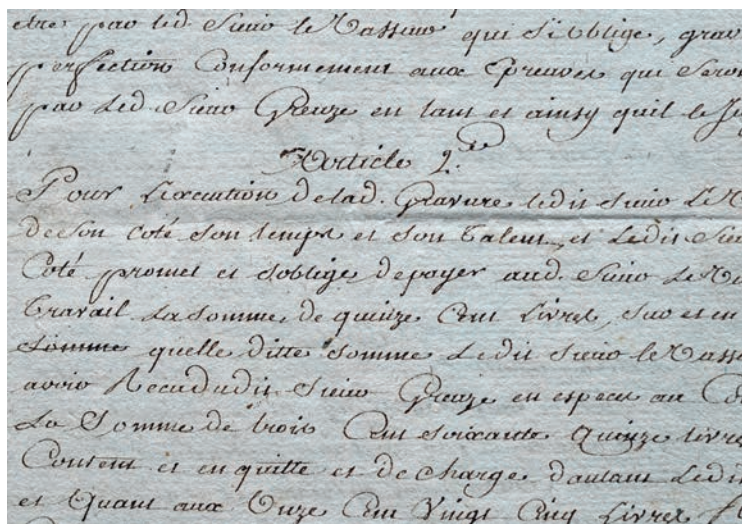 etre par led. Sieur le Vasseur qui s'oblige, grav
perfection Conformement aux Epreuves qui Seron
par Led. Sieur Greuze en tant et ainsy quil le Ju
Article 2.e
Pour L'execution de lad. Gravure ledit Sieur Le V
de Son Coté Son temps et Son talent, et Ledit Sieu
Coté promet et soblige de payer aud. Sieur Le Va
travail La Somme, de quinze Cent Livres, Sur et en
Somme quelle ditte Somme Ledit Sieur le Vasse
avoir Recu dudit Sieur Greuze en especes au Co
La Somme de trois Cent soixante quinze livres
Content et en quitte et de charge d'autant Ledit
et Quant aux Onze Cent Vingt Cinq Livres